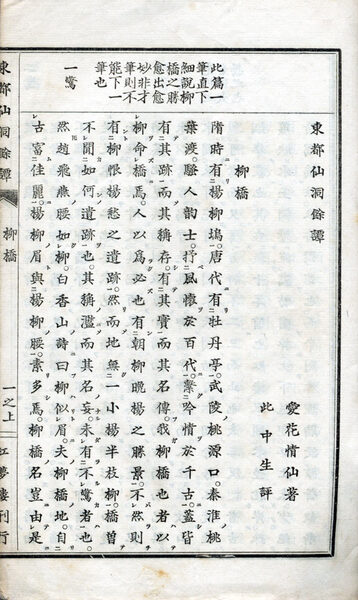 東都仙洞餘譚
愛花情仙著
此中生評
柳橋
隋時有楊柳塢。唐代有牡丹亭。武陵桃源口。秦淮桃
葉渡。騷人韻士。抒風懷於百代。繫吟情於千古。蓋皆
有其跡而其稱存。有其實而其名傳。我柳橋也者以
柳命橋焉。人以為必也有朝柳晚楊之勝景。不然則
有柳恨楊愁之遺跡。然而地無一小楊半枝柳。橋曾
不聞如何遺跡也。其稱濫而其名妄。未有不驚者也。
然趙飛燕腰如柳。白香山詩曰柳似眉。夫柳橋地。自
古富佳麗。楊柳眉與楊柳腰。素多焉。柳橋名豈由是
此篇一
筆直下
細說柳
橋之勝
愈出愈
妙非才
筆則不
能下一
筆也
一驚
東都仙洞餘譚
柳橋
一之上
紅夢樓刊行